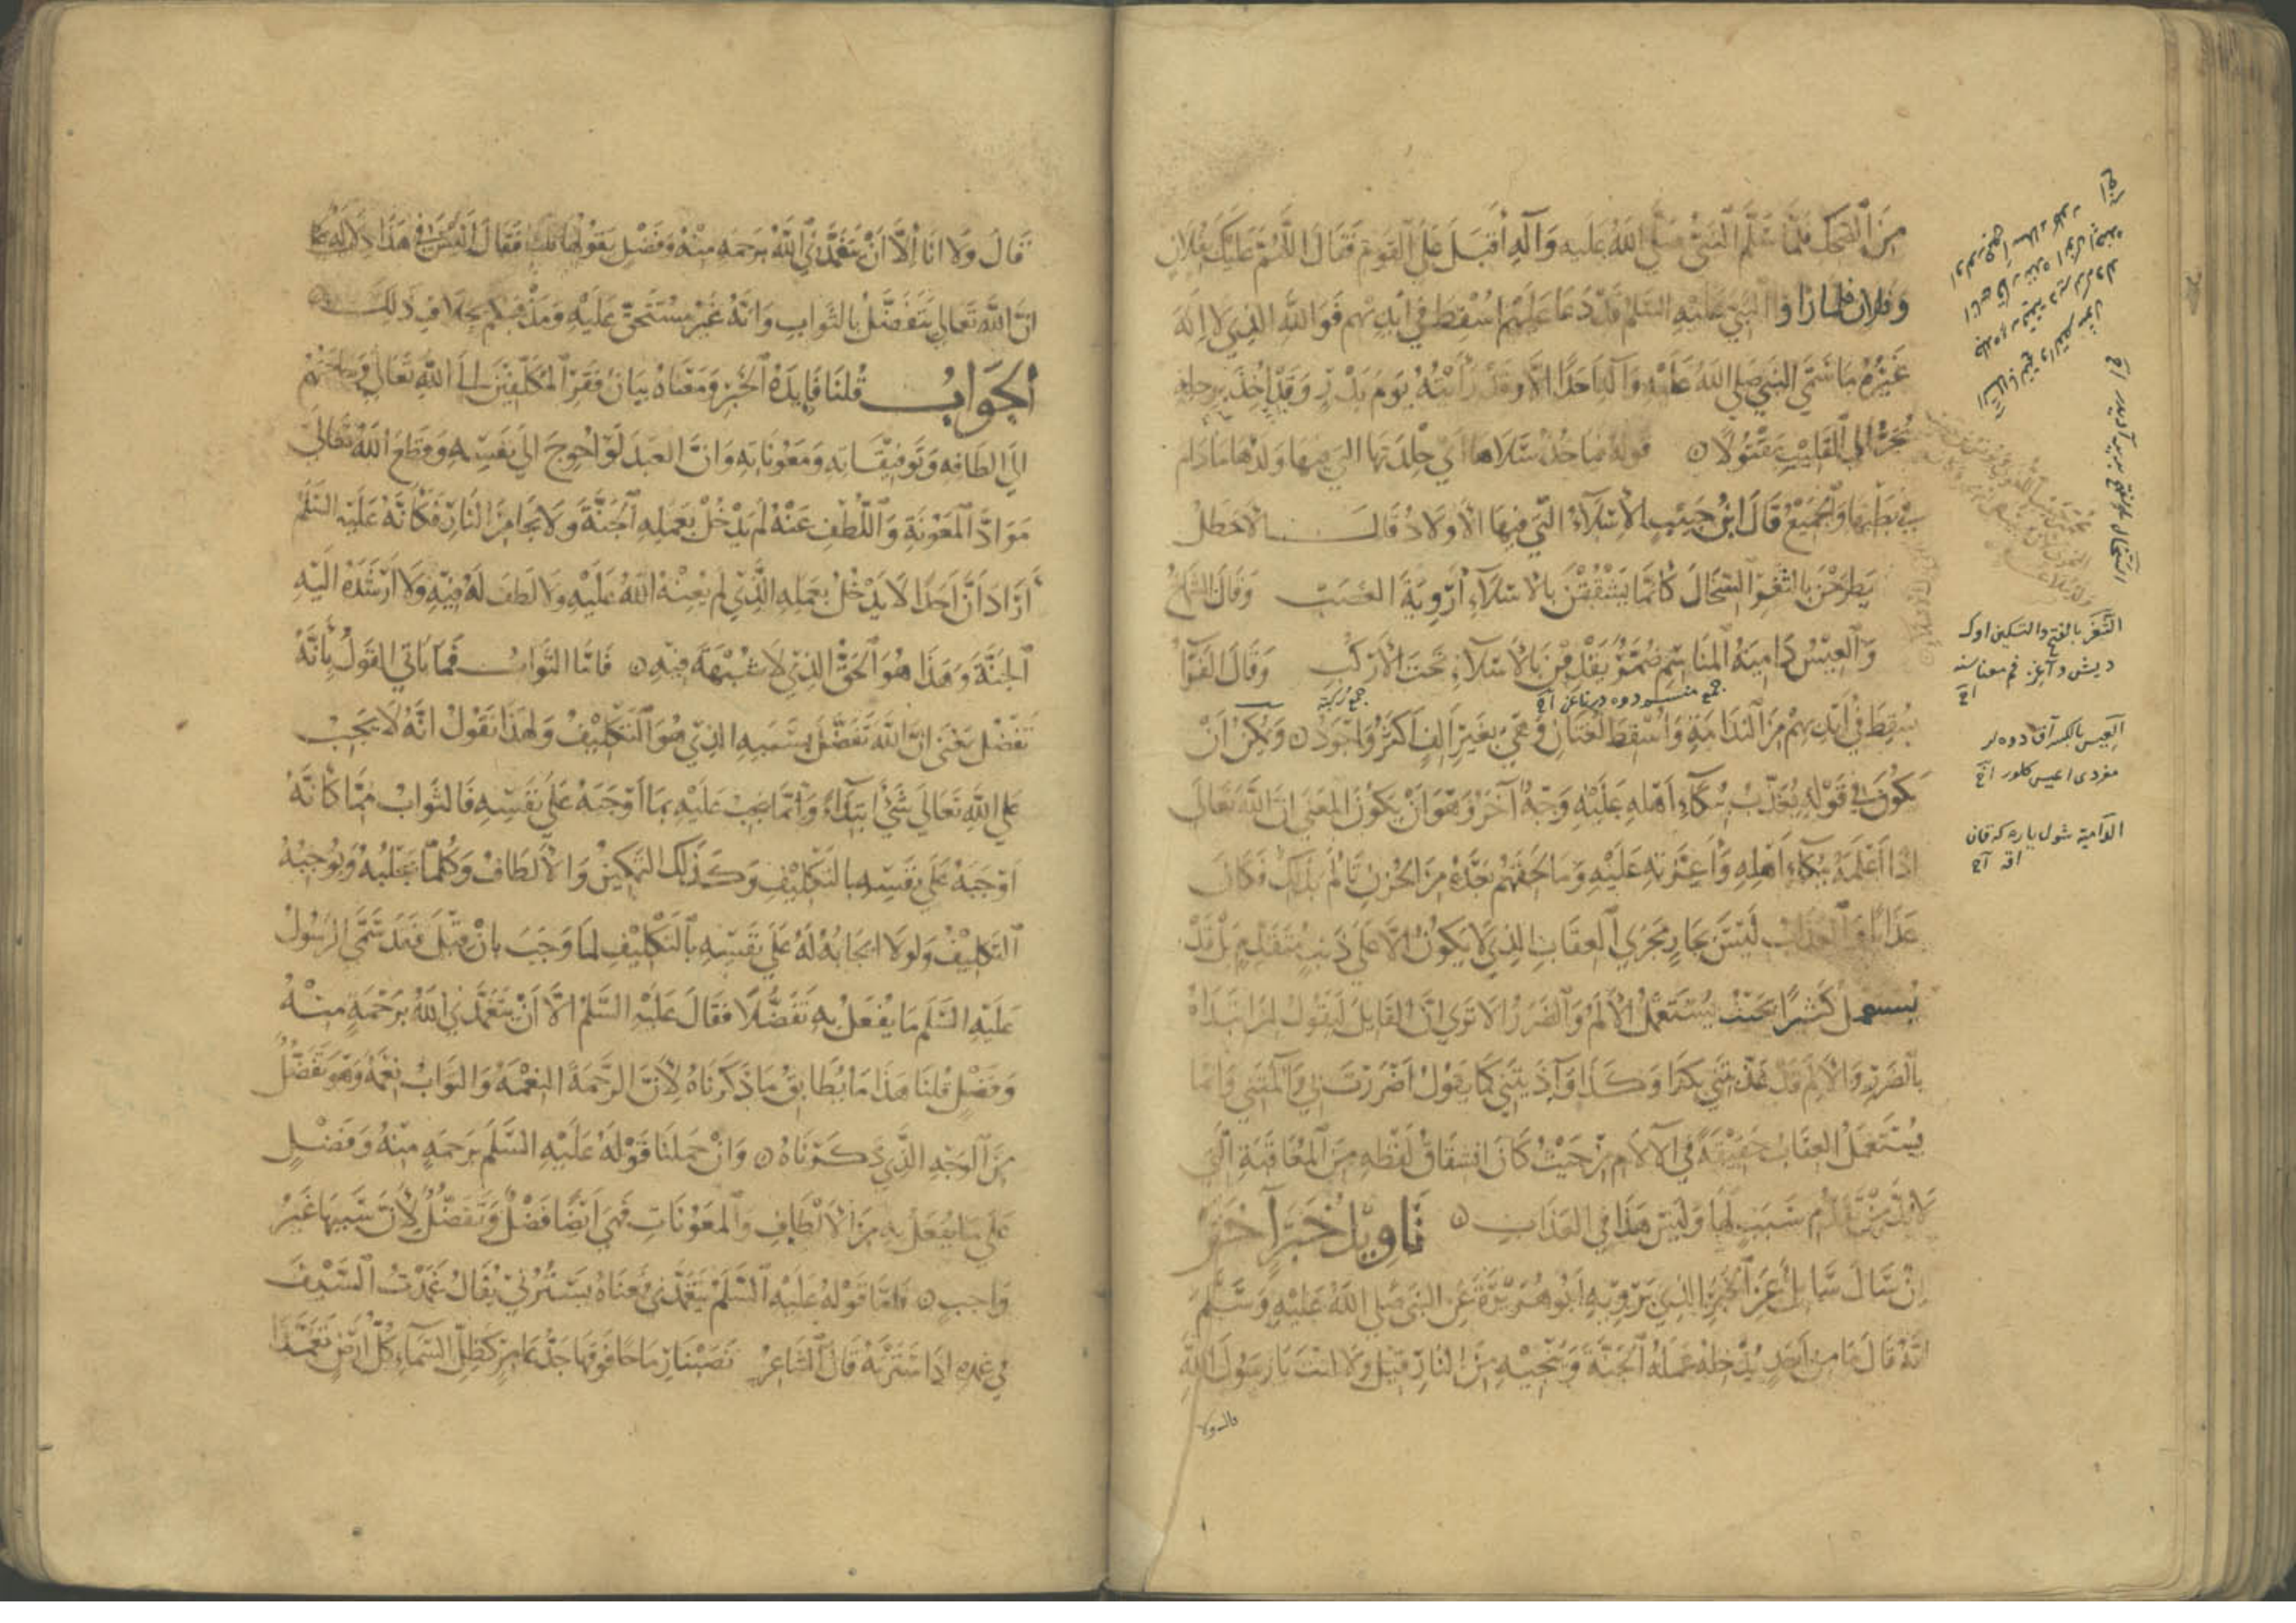 من الضحك فلما سلم النبي صلى الله عليه وآله أقبل على القوم فقال اللهم عليك بفلان
وفلان فلما رأوا النبي عليه السلم قد دعا عليهم اسقط في أيديهم فوالله الذي لا اله
غيره ما سمى النبي صلى الله عليه وآله احدا الا وقد رأيته يوم بدر وقد اخذ برجله
يجر الى القليب مقتولا ه قوله فاخذ سلاها أي جلدتها التي فيها ولدها ما دام
في بطنها والجميع قال ابن حبيب الاسلاء التي فيها الاولاد قال الاخطل
يطرحن بالثغر السخال كأنما يشققن بالاسلاء أردية العصب وقال الشماخ
والعيس دامية المناسم ضمر يقذفن بالاسلاء تحت الأركب وقال الفرا
سقط في أيديهم من الندامة واسقط لغتان وهي بغير الف أكثر وأجود ه ويمكن أن
يكون في قوله يعذب ببكاء أهله عليه وجه آخر وهو أن يكون المعنى ان الله تعالى
اذا أعلمه ببكاء أهله وأعزته عليه وما لحقهم بعده من الحزن تألم بذلك فكان
عذابا له والعذاب ليس بجار مجرى العقاب الذي لا يكون الا على ذنب متقدم بل قد
يستعمل كثيرا بحيث يستعمل الألم والضرر الا ترى ان القايل ليقول لمن ابتداه
بالضرر والألم قد عذبتني بكذا وكذا وآذيتني كما يقول أضررت بي وآلمتني وانما
يستعمل العقاب حقيقة في الآلام من حيث كان اشتقاق لفظه من المعاقبة التي
لا بد من تقدم سبب لها وليس هذا في العذاب ه تاويل خبر آخر
ان سال سايل عن الخبر الذي يرويه أبو هريرة عن النبي صلى الله عليه وسلم
انه قال ما من أحد يدخله عمله الجنة وينجيه من النار قيل ولا انت يا رسول الله
قال ولا
الثغر بالفتح والتسكين اوك
ديش و آغز فم معناسنه
اخ
العيس بالكسر آق دوه لر
مفردى اعيس كلور اخ
الدامية شول ياره كه قان
اقه اخ
جمع منسم دوه در ناغن اخ
قال ولا انا الا أن يتغمدني الله برحمة منه وفضل يقولها ثلثا فقال أليس في هذا دلالة على
ان الله تعالى يتفضل بالثواب وانه غير مستحق عليه ومذهبكم بخلاف ذلك ه
الجواب قلنا فايدة الخبر ومعناه بيان فقر المكلفين الى الله تعالى وحاجتهم
الى الطافه وتوفيقاته ومعوناته وان العبد لو احوج الى نفسه وقطع الله تعالى
مواد المعونة واللطف عنه لم يدخل بعمله الجنة ولا نجا من النار فكأنه عليه السلم
أراد أن أحدا لا يدخل بعمله الذي لم يعنه الله عليه ولا لطف له فيه ولا ارشده اليه
الجنة وهذا هو الحق الذي لا شبهة فيه ه فاما الثواب فما نأبى القول بأنه
تفضل بمعنى ان الله تفضل بسببه الذي هو التكليف ولهذا نقول انه لا يجب
على الله تعالى شئ ابتداء وانما يجب عليه بما أوجبه على نفسه فالثواب مما كأنه
أوجبه على نفسه بالتكليف وكذلك التمكين والألطاف وكلما يجلبه ويوجبه
التكليف ولولا ايجابه له على نفسه بالتكليف لما وجب بان قيل فقد سمى الرسول
عليه السلم ما يفعل به تفضلا فقال عليه السلم الا أن يتغمدني الله برحمة منه
وفضل قلنا هذا ما يطابق ما ذكرناه لأن الرحمة النعمة والثواب نعمة وهو تفضل
من الوجه الذي ذكرناه ه وان حملنا قوله عليه السلم برحمة منه وفضل
على ما يفعل به من الألطاف والمعونات فهي أيضا فضل وتفضل لأن سببها غير
واجب ه فاما قوله عليه السلم يتغمدني معناه يسترني يقال غمدت السيف
في غمده اذا سترته قال الشاعر نصبنا رماحا فوقها جد عامر كظل السماء كل أرض تغمدا